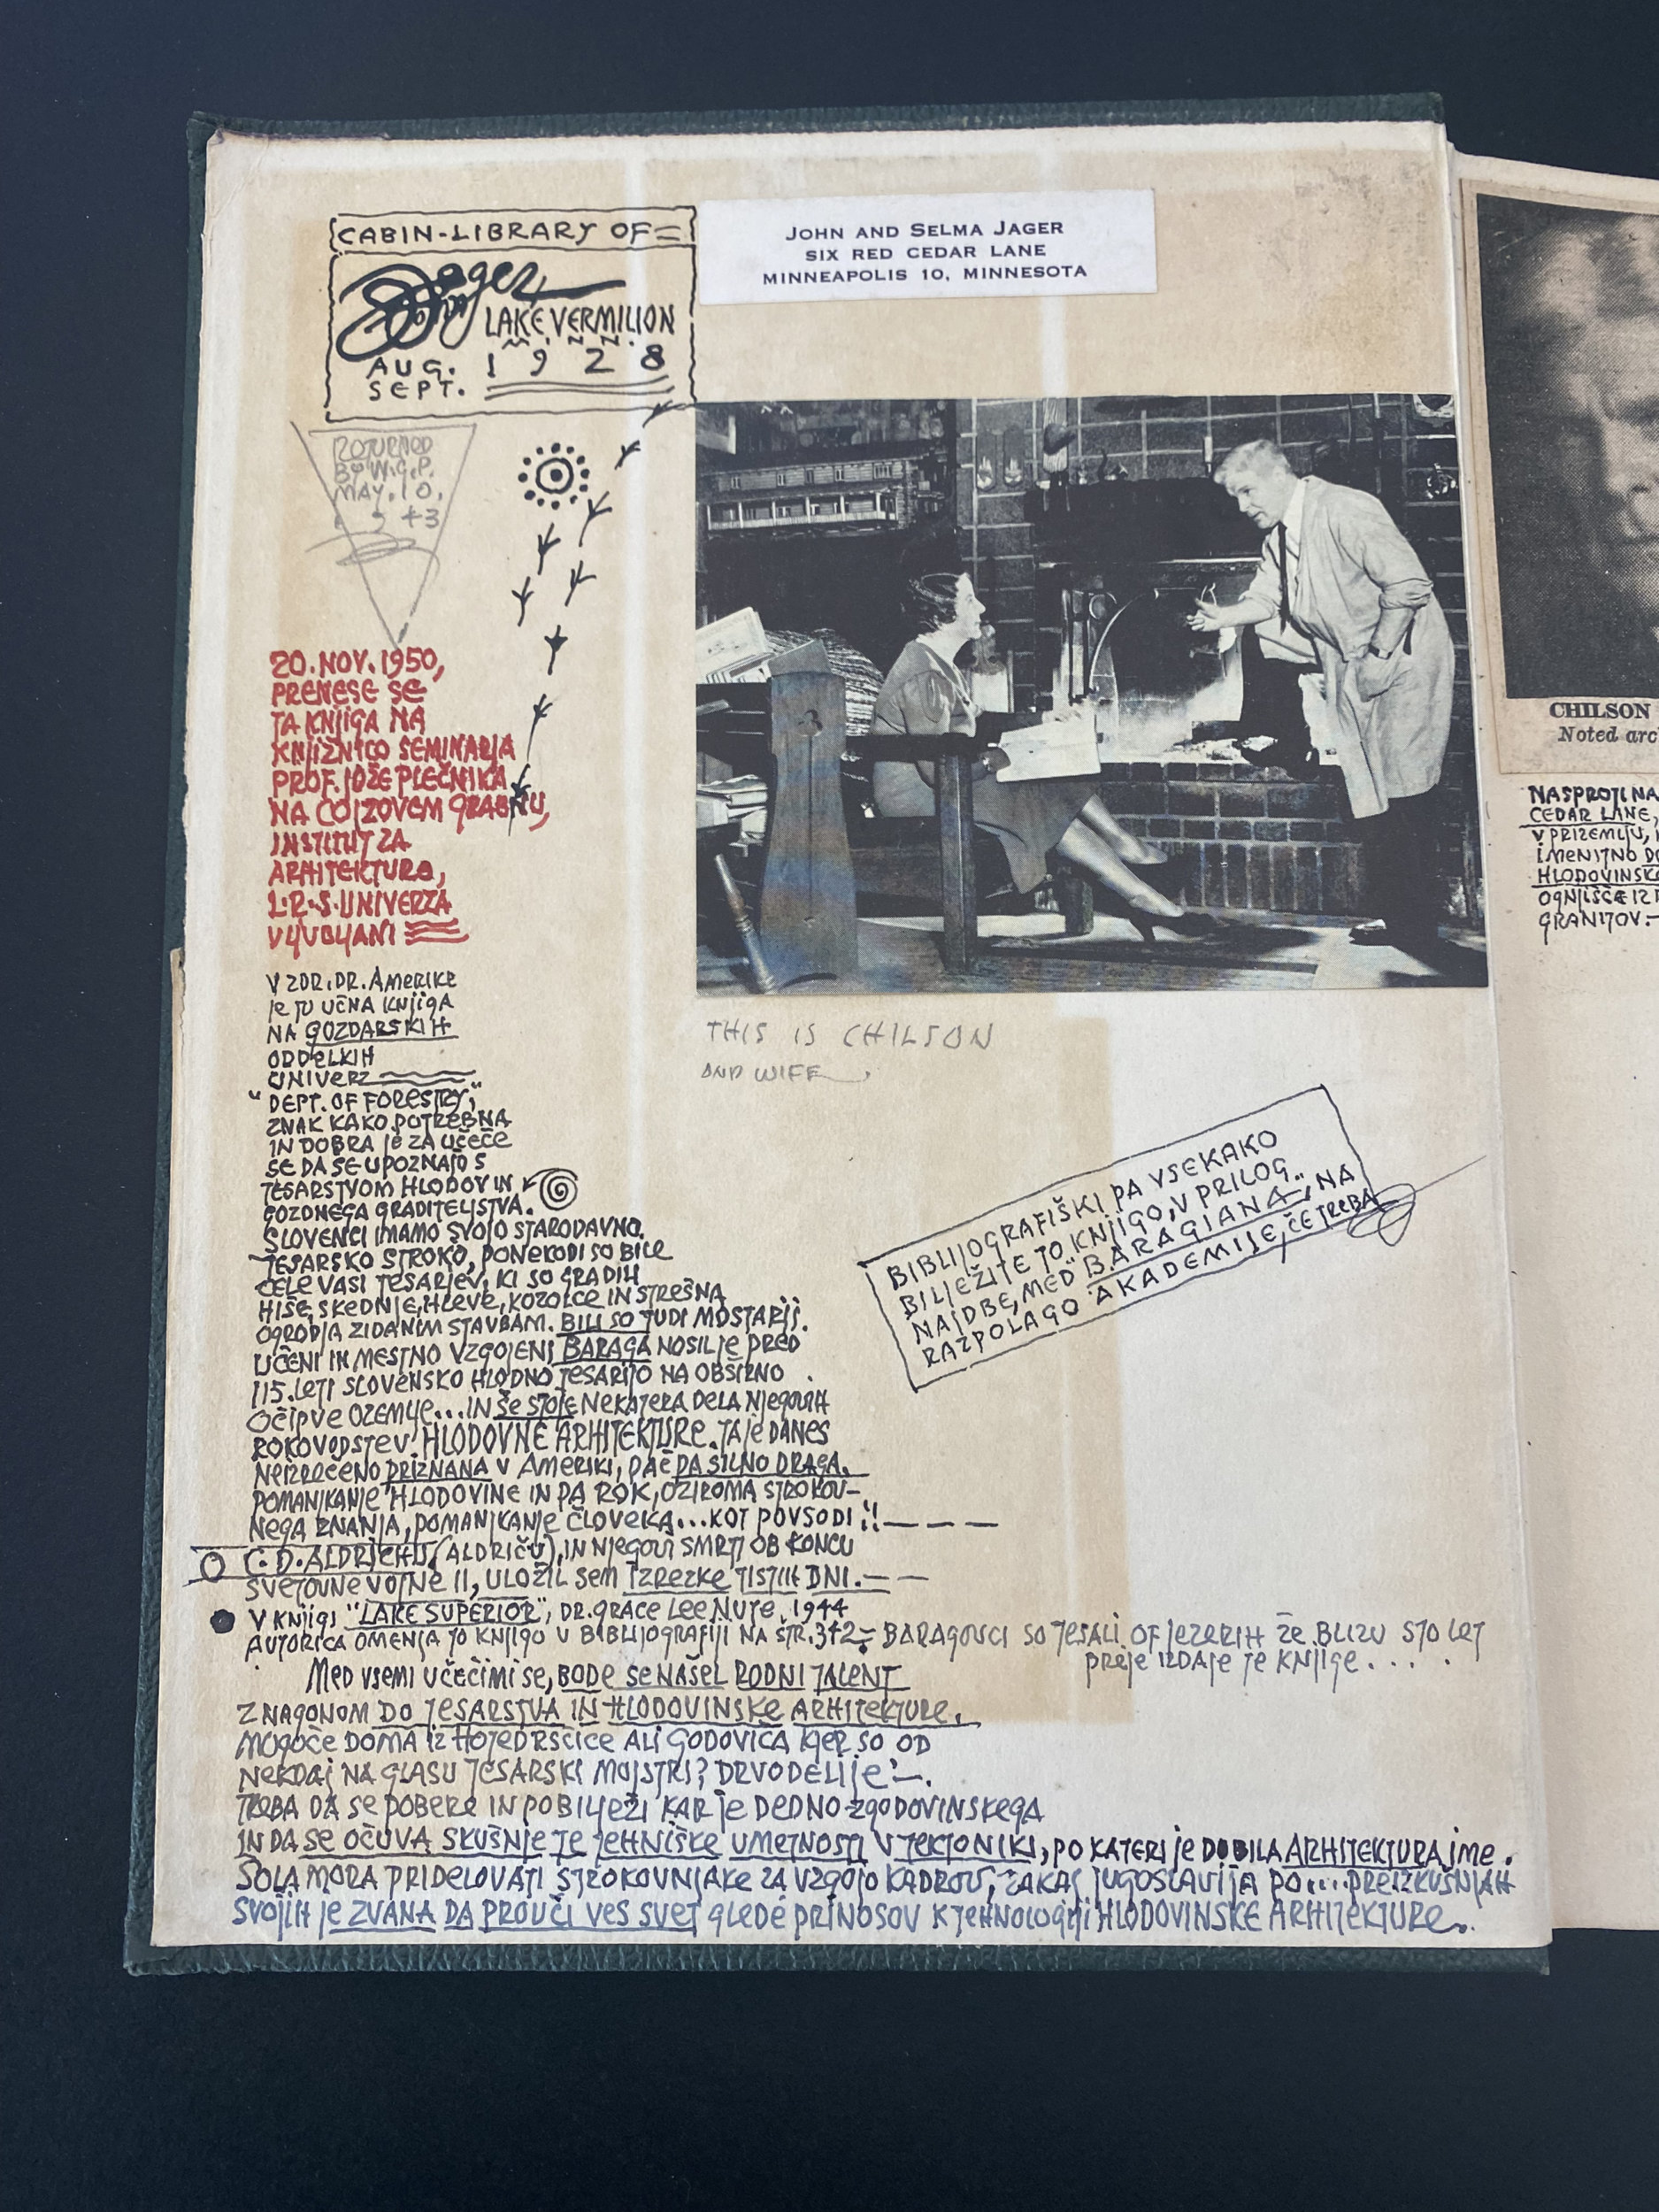 CABIN-LIBRARY OF=
John Jager
LAKE VERMILION
MINN.
AUG. 1928
SEPT.
JOHN AND SELMA JAGER
SIX RED CEDAR LANE
MINNEAPOLIS 10, MINNESOTA
RETURNED
BY W.G.P.
MAY. 10.
1943
20. NOV. 1950,
PRENESE SE
TA KNJIGA NA
KNJIŽNICO SEMINARJA
PROF. JOŽE PLEČNIKA
NA COJZOVEM GRABNU,
INSTITUT ZA
ARHITEKTURO,
L.R.S. UNIVERZA
V LJUBLJANI
V ZDR. DR. AMERIKE
JE TO UČNA KNJIGA
NA GOZDARSKIH
ODDELKIH
UNIVERZ
"DEPT. OF FORESTRY",
ZNAK KAKO POTREBNA
IN DOBRA JE ZA UČEČE
SE DA SE UPOZNAJO S
TESARSTVOM HLODOV IN
GOZDNEGA GRADITELJSTVA.
SLOVENCI IMAMO SVOJO STARODAVNO
TESARSKO STROKO, PONEKODI SO BILE
CELE VASI TESARJEV, KI SO GRADILI
HIŠE, SKEDNJE, HLEVE, KOZOLCE IN STREŠNA
OGRODJA ZIDANIM STAVBAM. BILI SO TUDI MOSTARJI.
UČENI IN MESTNO VZGOJENI BARAGA NOSIL JE PRED
115. LETI SLOVENSKO HLODNO TESARIJO NA OBŠIRNO
OČIPVE OZEMLJE...IN ŠE STOJE NEKATERA DELA NJEGOVIH
ROKOVODSTEV. HLODOVNE ARHITEKTURE. TA JE DANES
NEIZREČENO PRIZNANA V AMERIKI, PAČ PA SILNO DRAGA.
POMANJKANJE HLODOVINE IN PA ROK, OZIROMA STROKOV-
NEGA ZNANJA, POMANJKANJE ČLOVEKA...KOT POVSODI!!———
C.D. ALDRICHU (ALDRIČU), IN NJEGOVI SMRTI OB KONCU
SVETOVNE VOJNE II, ULOŽIL SEM IZREZKE TISTIH DNI.——
V KNJIGI "LAKE SUPERIOR", DR. GRACE LEE NUTE, 1944
AUTORICA OMENJA TO KNJIGO V BIBLIJOGRAFIJI NA STR. 342- BARAGOVCI SO TESALI OF JEZERIH ŽE BLIZU STO LET
PREJE IZDAJE TE KNJIGE....
MED VSEMI UČEČIMI SE, BODE SE NAŠEL RODNI TALENT
Z NAGONOM DO TESARSTVA IN HLODOVINSKE ARHITEKTURE.
MOGOČE DOMA IZ HOTEDRŠČICE ALI GODOVIČA KJER SO OD
NEKDAJ NA GLASU TESARSKI MOJSTRI? DRVODELIJE!—.
TREBA DA SE POBERE IN POBILJEŽI KAR JE DEDNO-ZGODOVINSKEGA
IN DA SE OČUVA SKUŠNJE TE TEHNIŠKE UMETNOSTI V TEKTONIKI, PO KATERI JE DOBILA ARHITEKTURA IME.
ŠOLA MORA PRIDELOVATI STROKOVNJAKE ZA VZGOJO KADROV, ZAKAJ JUGOSLAVIJA PO....PREIZKUŠNJAH
SVOJIH JE ZVANA DA PROUČI VES SVET GLEDE PRINOSOV K TEHNOLOGIJI HLODOVINSKE ARHITEKTURE.
THIS IS CHILSON
AND WIFE
BIBLIJOGRAFIŠKI PA VSEKAKO
BILJEŽITE TO KNJIGO, V PRILOG
NAJDBE, MED "BARAGIANA", NA
RAZPOLAGO AKADEMIJE, ČE TREBA
CHILSON
Noted arc
NASPROTI NA
CEDAR LANE,
V PRIZEMLJU,
IMENITNO
HLODOVINSK
OGNJIŠČE IZ
GRANITOV.—